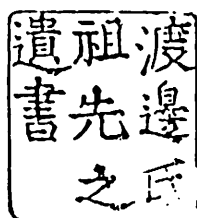 渡邊氏
祖先之
遺書